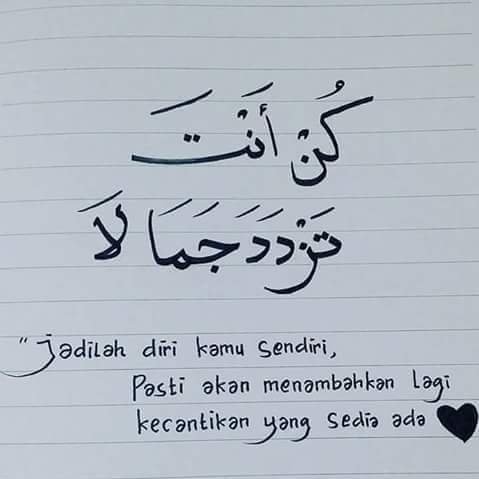 كُنْ أَنْتَ
تَزْدَدَ جَمَالاَ
"Jadilah diri kamu sendiri,
Pasti akan menambahkan lagi
kecantikan yang sedia ada